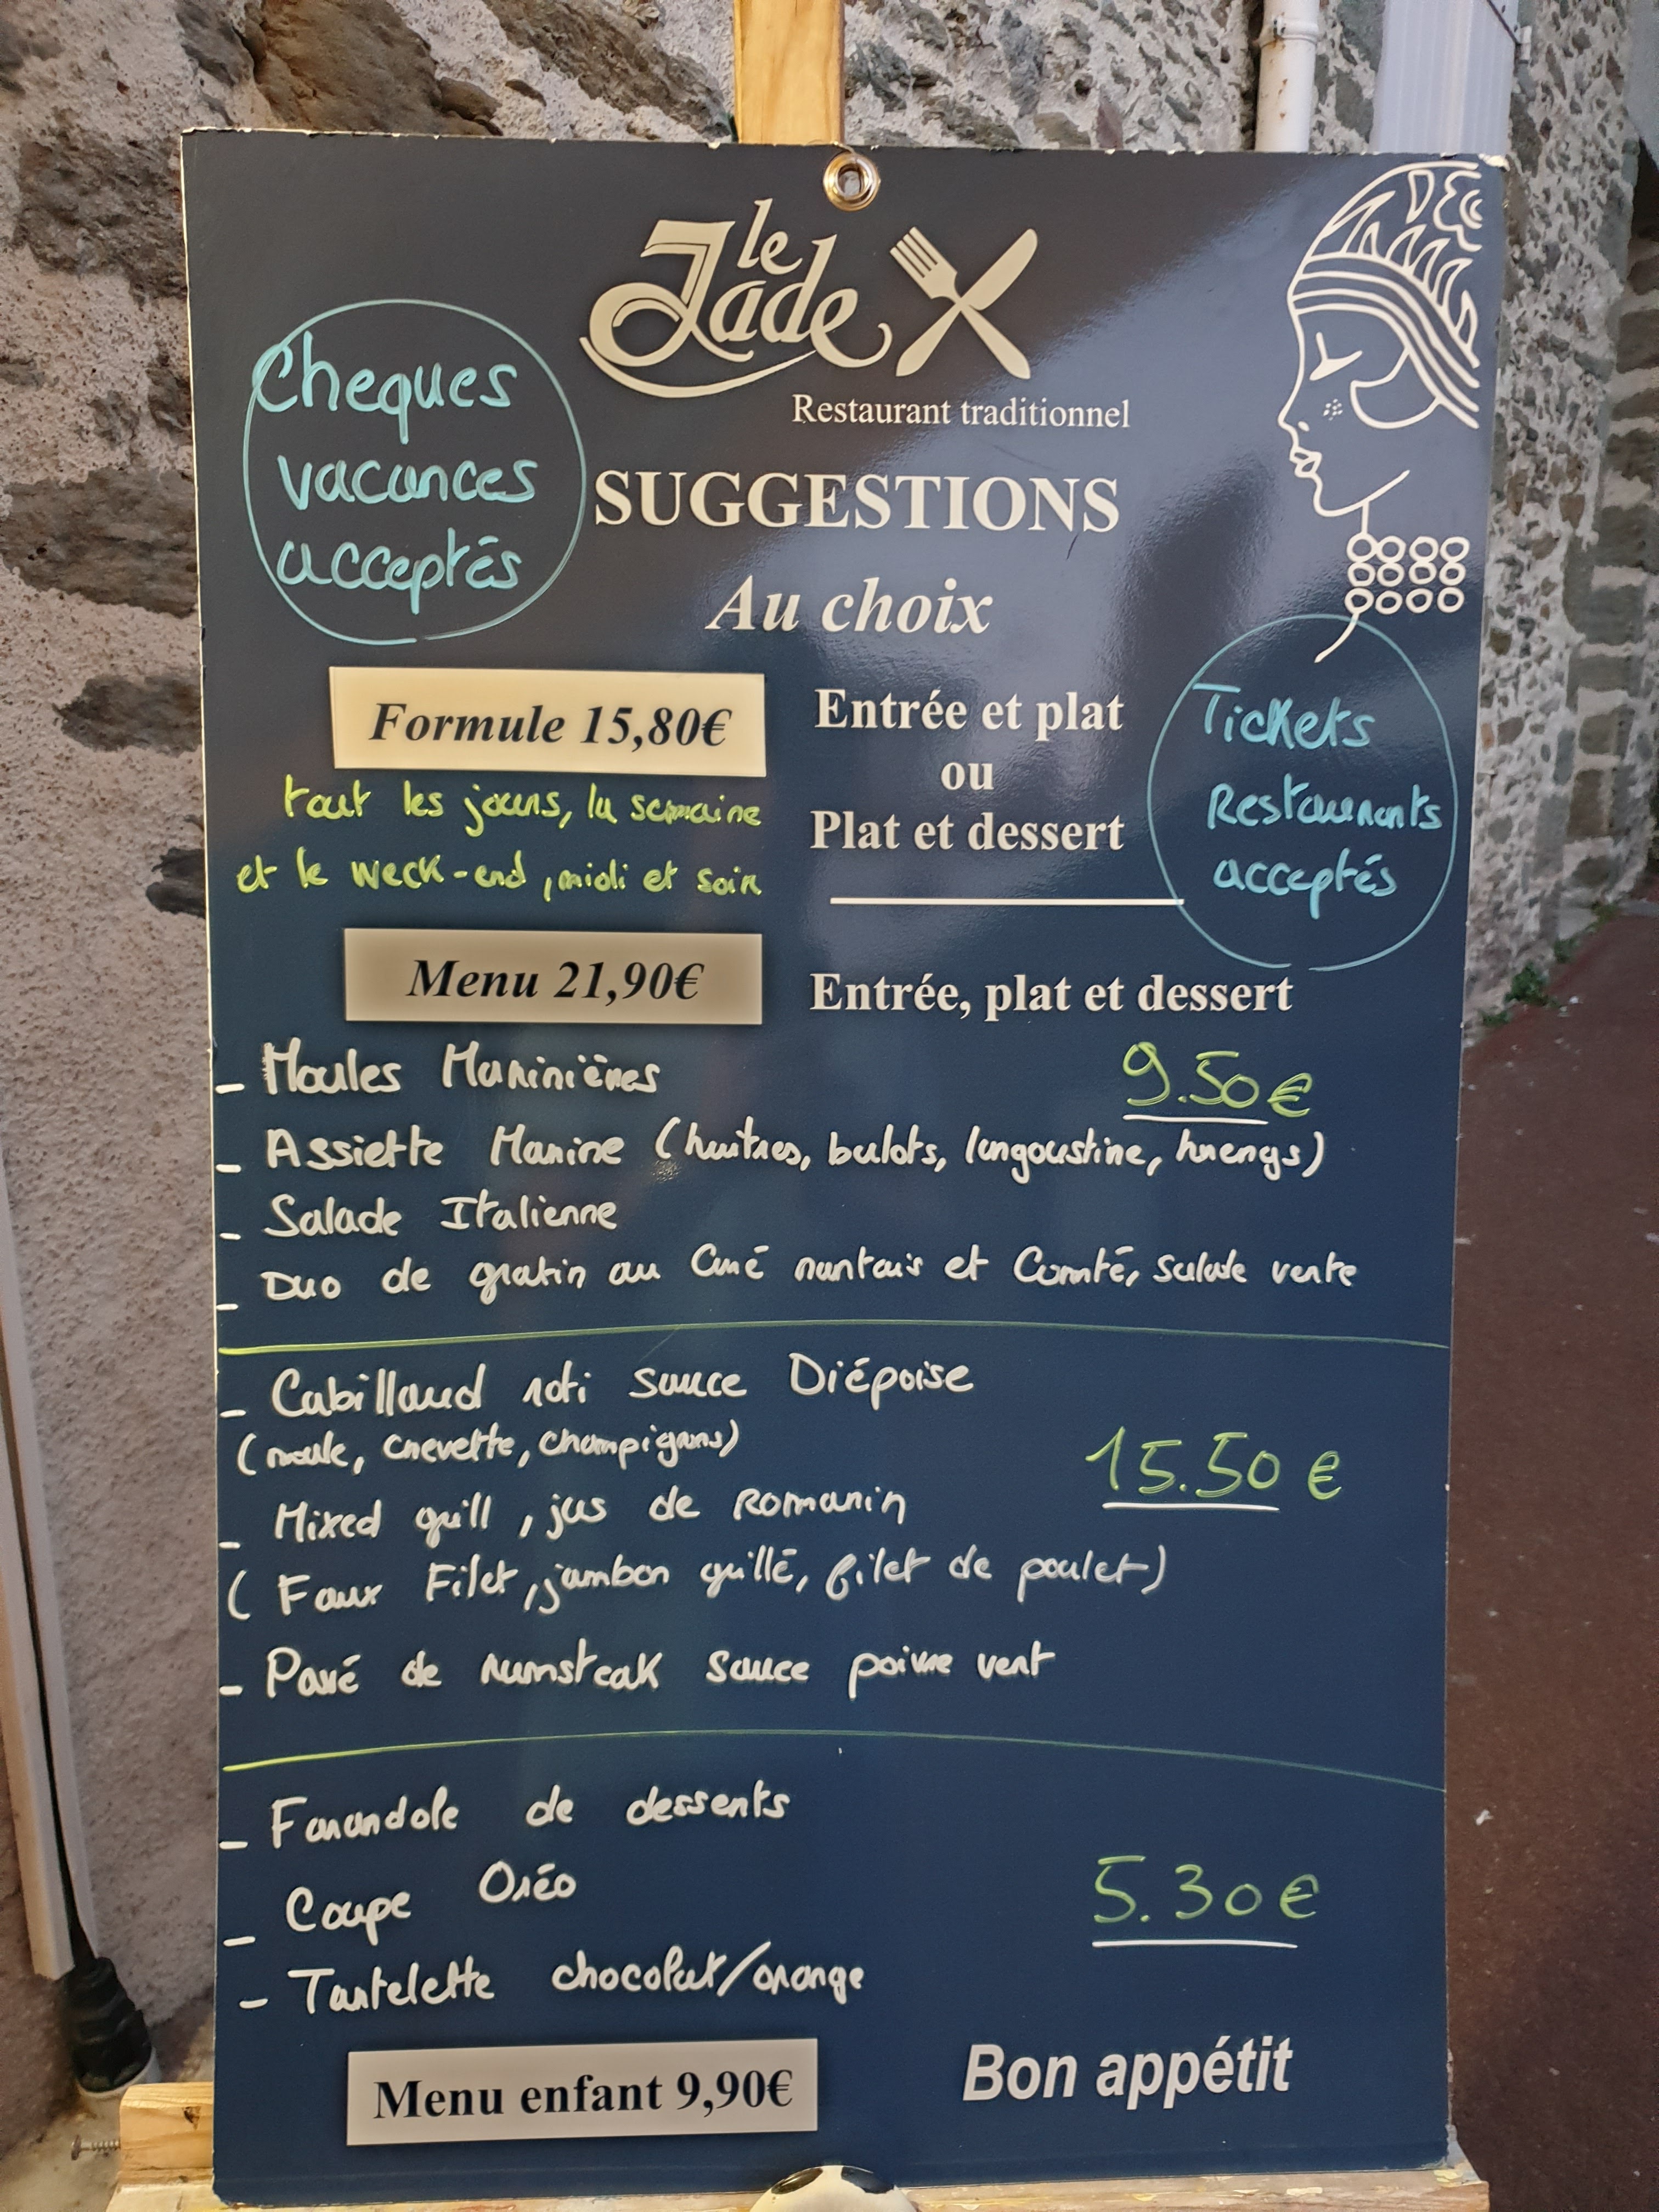 le Jade
Restaurant traditionnel
Cheques
vacances
acceptés
SUGGESTIONS
Au choix
Formule 15,80€
Entrée et plat
ou
Plat et dessert
tout les jours, la semaine
et le week-end, midi et soir
Tickets
Restaurants
acceptés
Menu 21,90€
Entrée, plat et dessert
- Moules Marinières 9.50€
- Assiette Marine (huitres, bulots, langoustine, harengs)
- Salade Italienne
- Duo de gratin au Curé nantais et Comté, salade verte
- Cabillaud roti sauce Diépoise
(moule, crevette, champignons) 15.50 €
- Mixed grill, jus de Romarin
(Faux Filet, jambon grillé, filet de poulet)
- Pavé de rumsteak sauce poivre vert
- Farandole de desserts
- Coupe Oréo 5.30€
- Tartelette chocolat/orange
Menu enfant 9,90€
Bon appétit